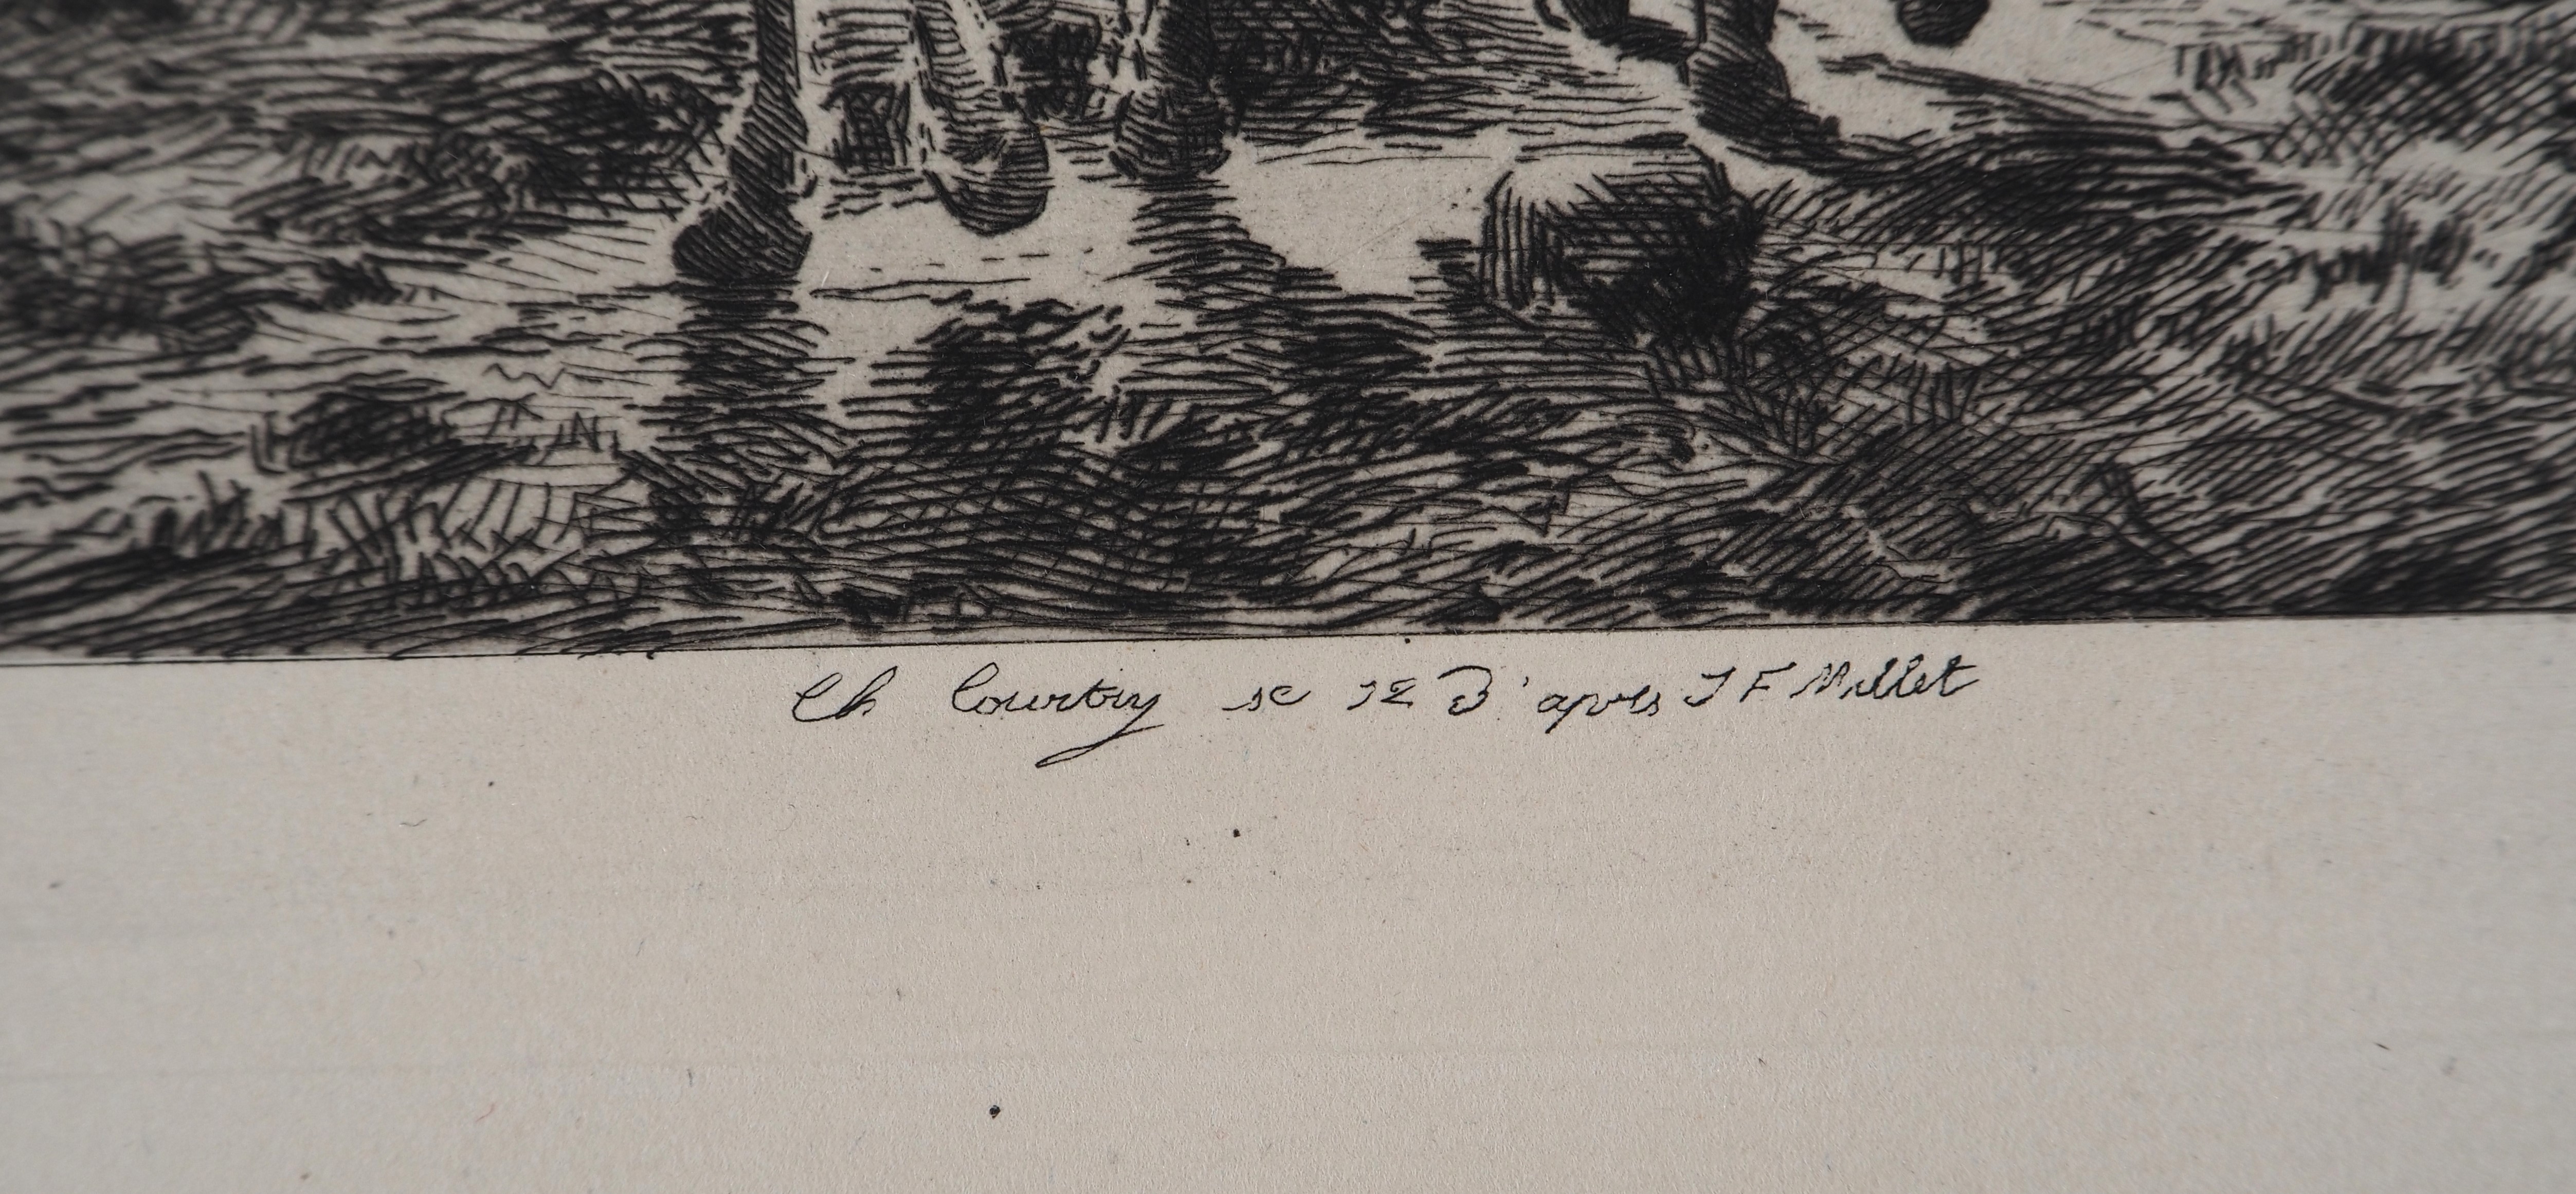 Ch Courtry sc 72 D'après J F Millet